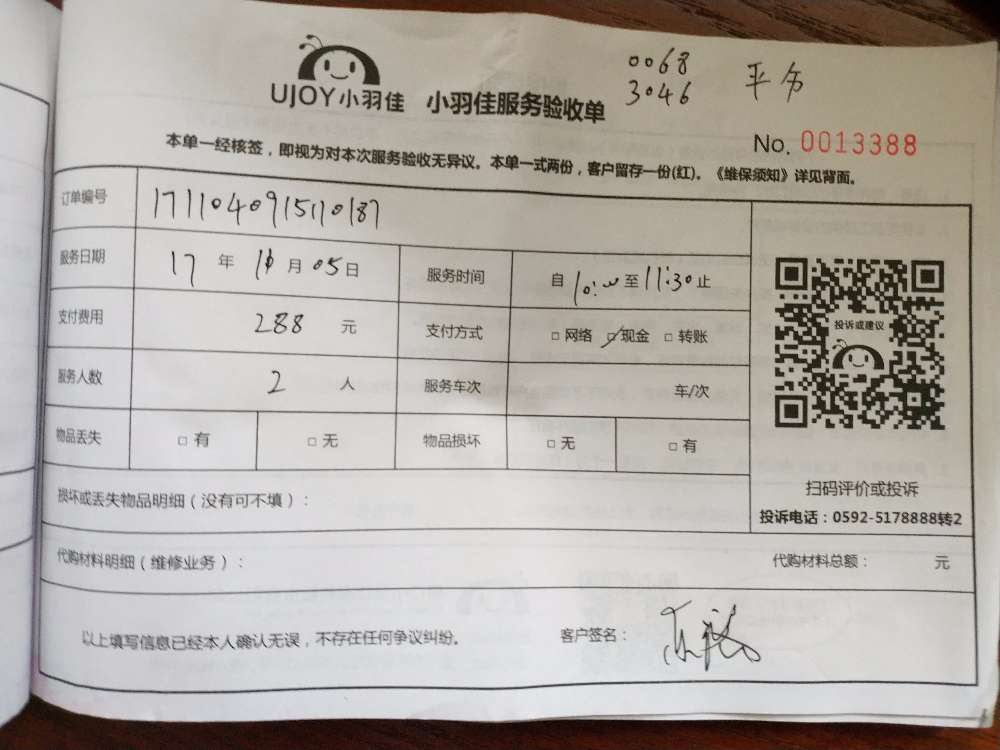 0068
3046 平分
UJOY小羽佳 小羽佳服务验收单
No. 0013388
本单一经核签，即视为对本次服务验收无异议。本单一式两份，客户留存一份(红)。《维保须知》详见背面。
订单编号 1711040915110187
服务日期 17 年 11 月 05 日 服务时间 自 10:00 至 11:30 止
支付费用 288 元 支付方式 □ 网络 □ 现金 □ 转账
服务人数 2 人 服务车次 车/次
物品丢失 □ 有 □ 无 物品损坏 □ 无 □ 有
投诉或建议
扫码评价或投诉
投诉电话：0592-5178888转2
损坏或丢失物品明细（没有可不填）：
代购材料明细（维修业务）： 代购材料总额： 元
以上填写信息已经本人确认无误，不存在任何争议纠纷。 客户签名：